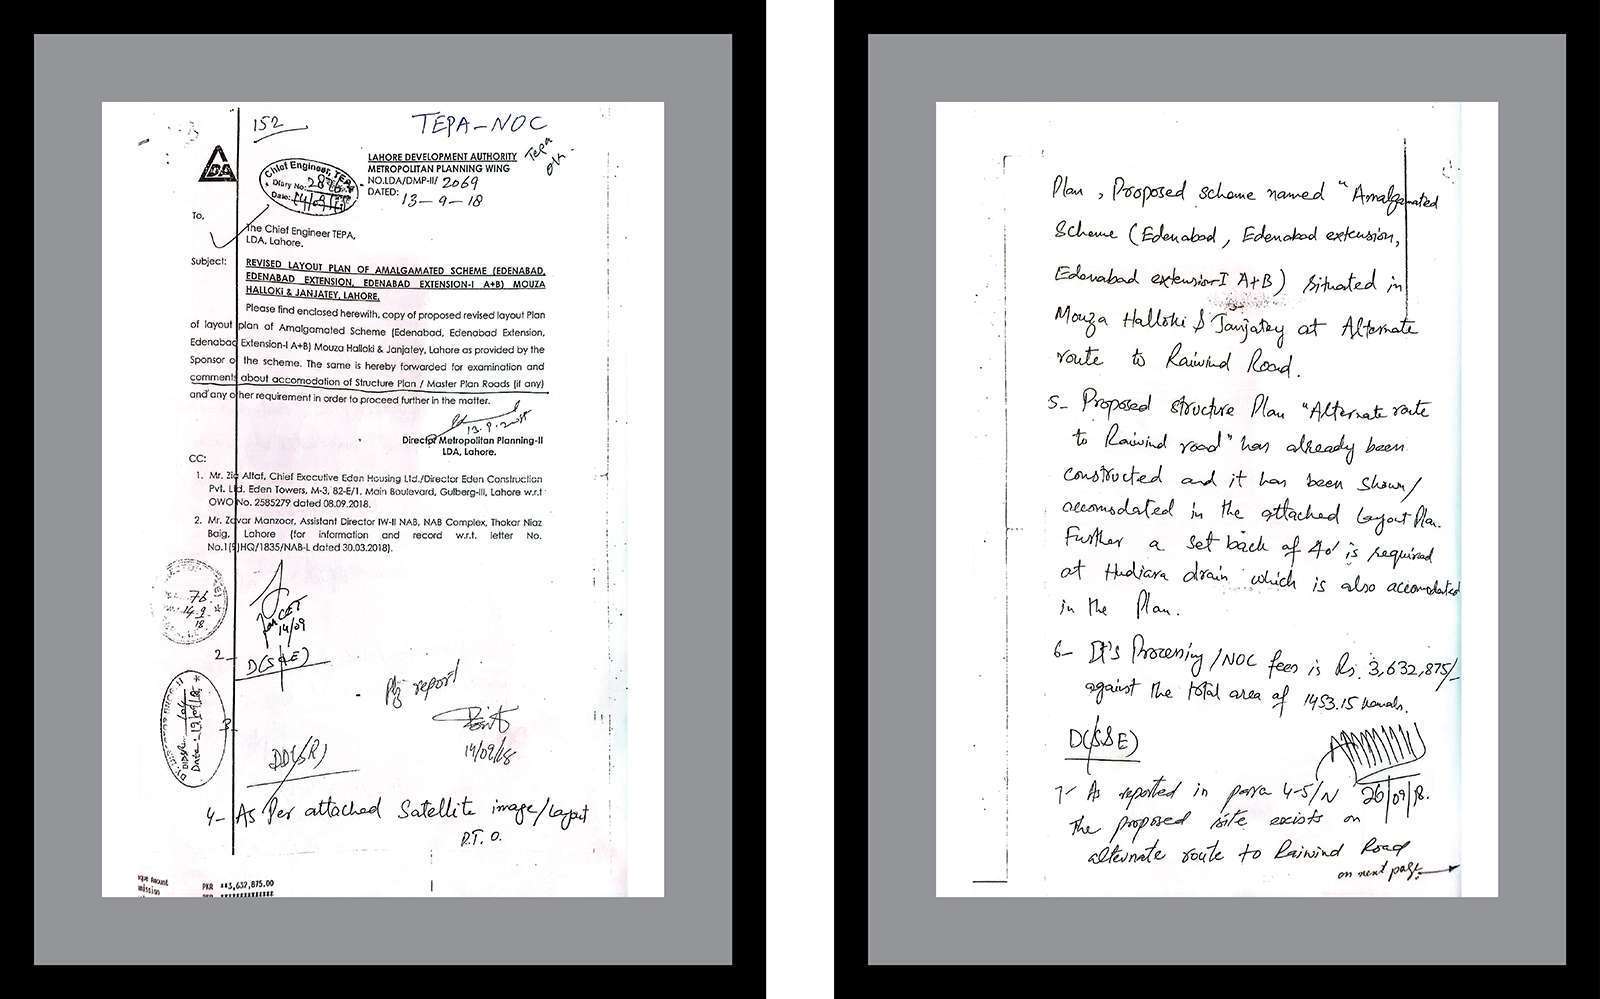 152
TEPA-NOC
Tepa
LDA
Chief Engineer, TEPA
Diary No:
Date:
LAHORE DEVELOPMENT AUTHORITY
METROPOLITAN PLANNING WING
NO.LDA/DMP-II/ 2069
DATED: 13-9-18
To,
The Chief Engineer TEPA,
LDA, Lahore.
Subject: REVISED LAYOUT PLAN OF AMALGAMATED SCHEME (EDENABAD,
EDENABAD EXTENSION, EDENABAD EXTENSION-I A+B) MOUZA
HALLOKI & JANJATEY, LAHORE.
Please find enclosed herewith, copy of proposed revised layout Plan
of layout plan of Amalgamated Scheme (Edenabad, Edenabad Extension,
Edenabad Extension-I A+B) Mouza Halloki & Janjatey, Lahore as provided by the
Sponsor of the scheme. The same is hereby forwarded for examination and
comments about accomodation of Structure Plan / Master Plan Roads (if any)
and any other requirement in order to proceed further in the matter.
Director Metropolitan Planning-II
LDA, Lahore.
CC:
1. Mr. Zia Altaf, Chief Executive Eden Housing Ltd./Director Eden Construction
Pvt. Ltd. Eden Towers, M-3, 82-E/1, Main Boulevard, Gulberg-III, Lahore w.r.t
OWO No. 2585279 dated 08.09.2018.
2. Mr. Zavar Manzoor, Assistant Director IW-II NAB, NAB Complex, Thokar Niaz
Baig, Lahore (for information and record w.r.t. letter No.
No.1(9)HQ/1835/NAB-L dated 30.03.2018).
76
14.9.
18.
14/09
2- D(S&E)
Plz report
14/09/18
3-
DD(SR)
4- As Per attached Satellite image/Layout
P.T.O.
PKR **3,632,875.00
Plan, Proposed scheme named "Amalgamated
Scheme (Edenabad, Edenabad extension,
Edenabad extension-I A+B) situated in
Mouza Halloki & Janjatey at Alternate
route to Raiwind Road.
5- Proposed structure Plan "Alternate route
to Raiwind road" has already been
constructed and it has been shown/
accomodated in the attached Layout Plan.
Further a set back of 40' is required
at Hudiara drain which is also accomodated
in the Plan.
6- It's Processing/NOC fees is Rs. 3,632,875/-
against the total area of 1453.15 kanals.
D(S&E)
7- As reported in para 4-5/N 26/09/18.
The proposed site exists on
alternate route to Raiwind Road
on next page